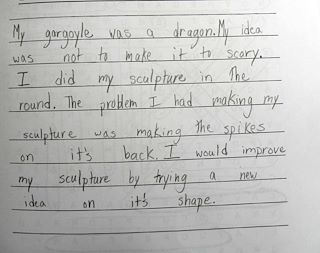 My gargoyle was a dragon. My idea
was not to make it to scary.
I did my sculpture in the
round. The problem I had making my
sculpture was making the spikes
on it's back. I would improve
my sculpture by trying a new
idea on it's shape.